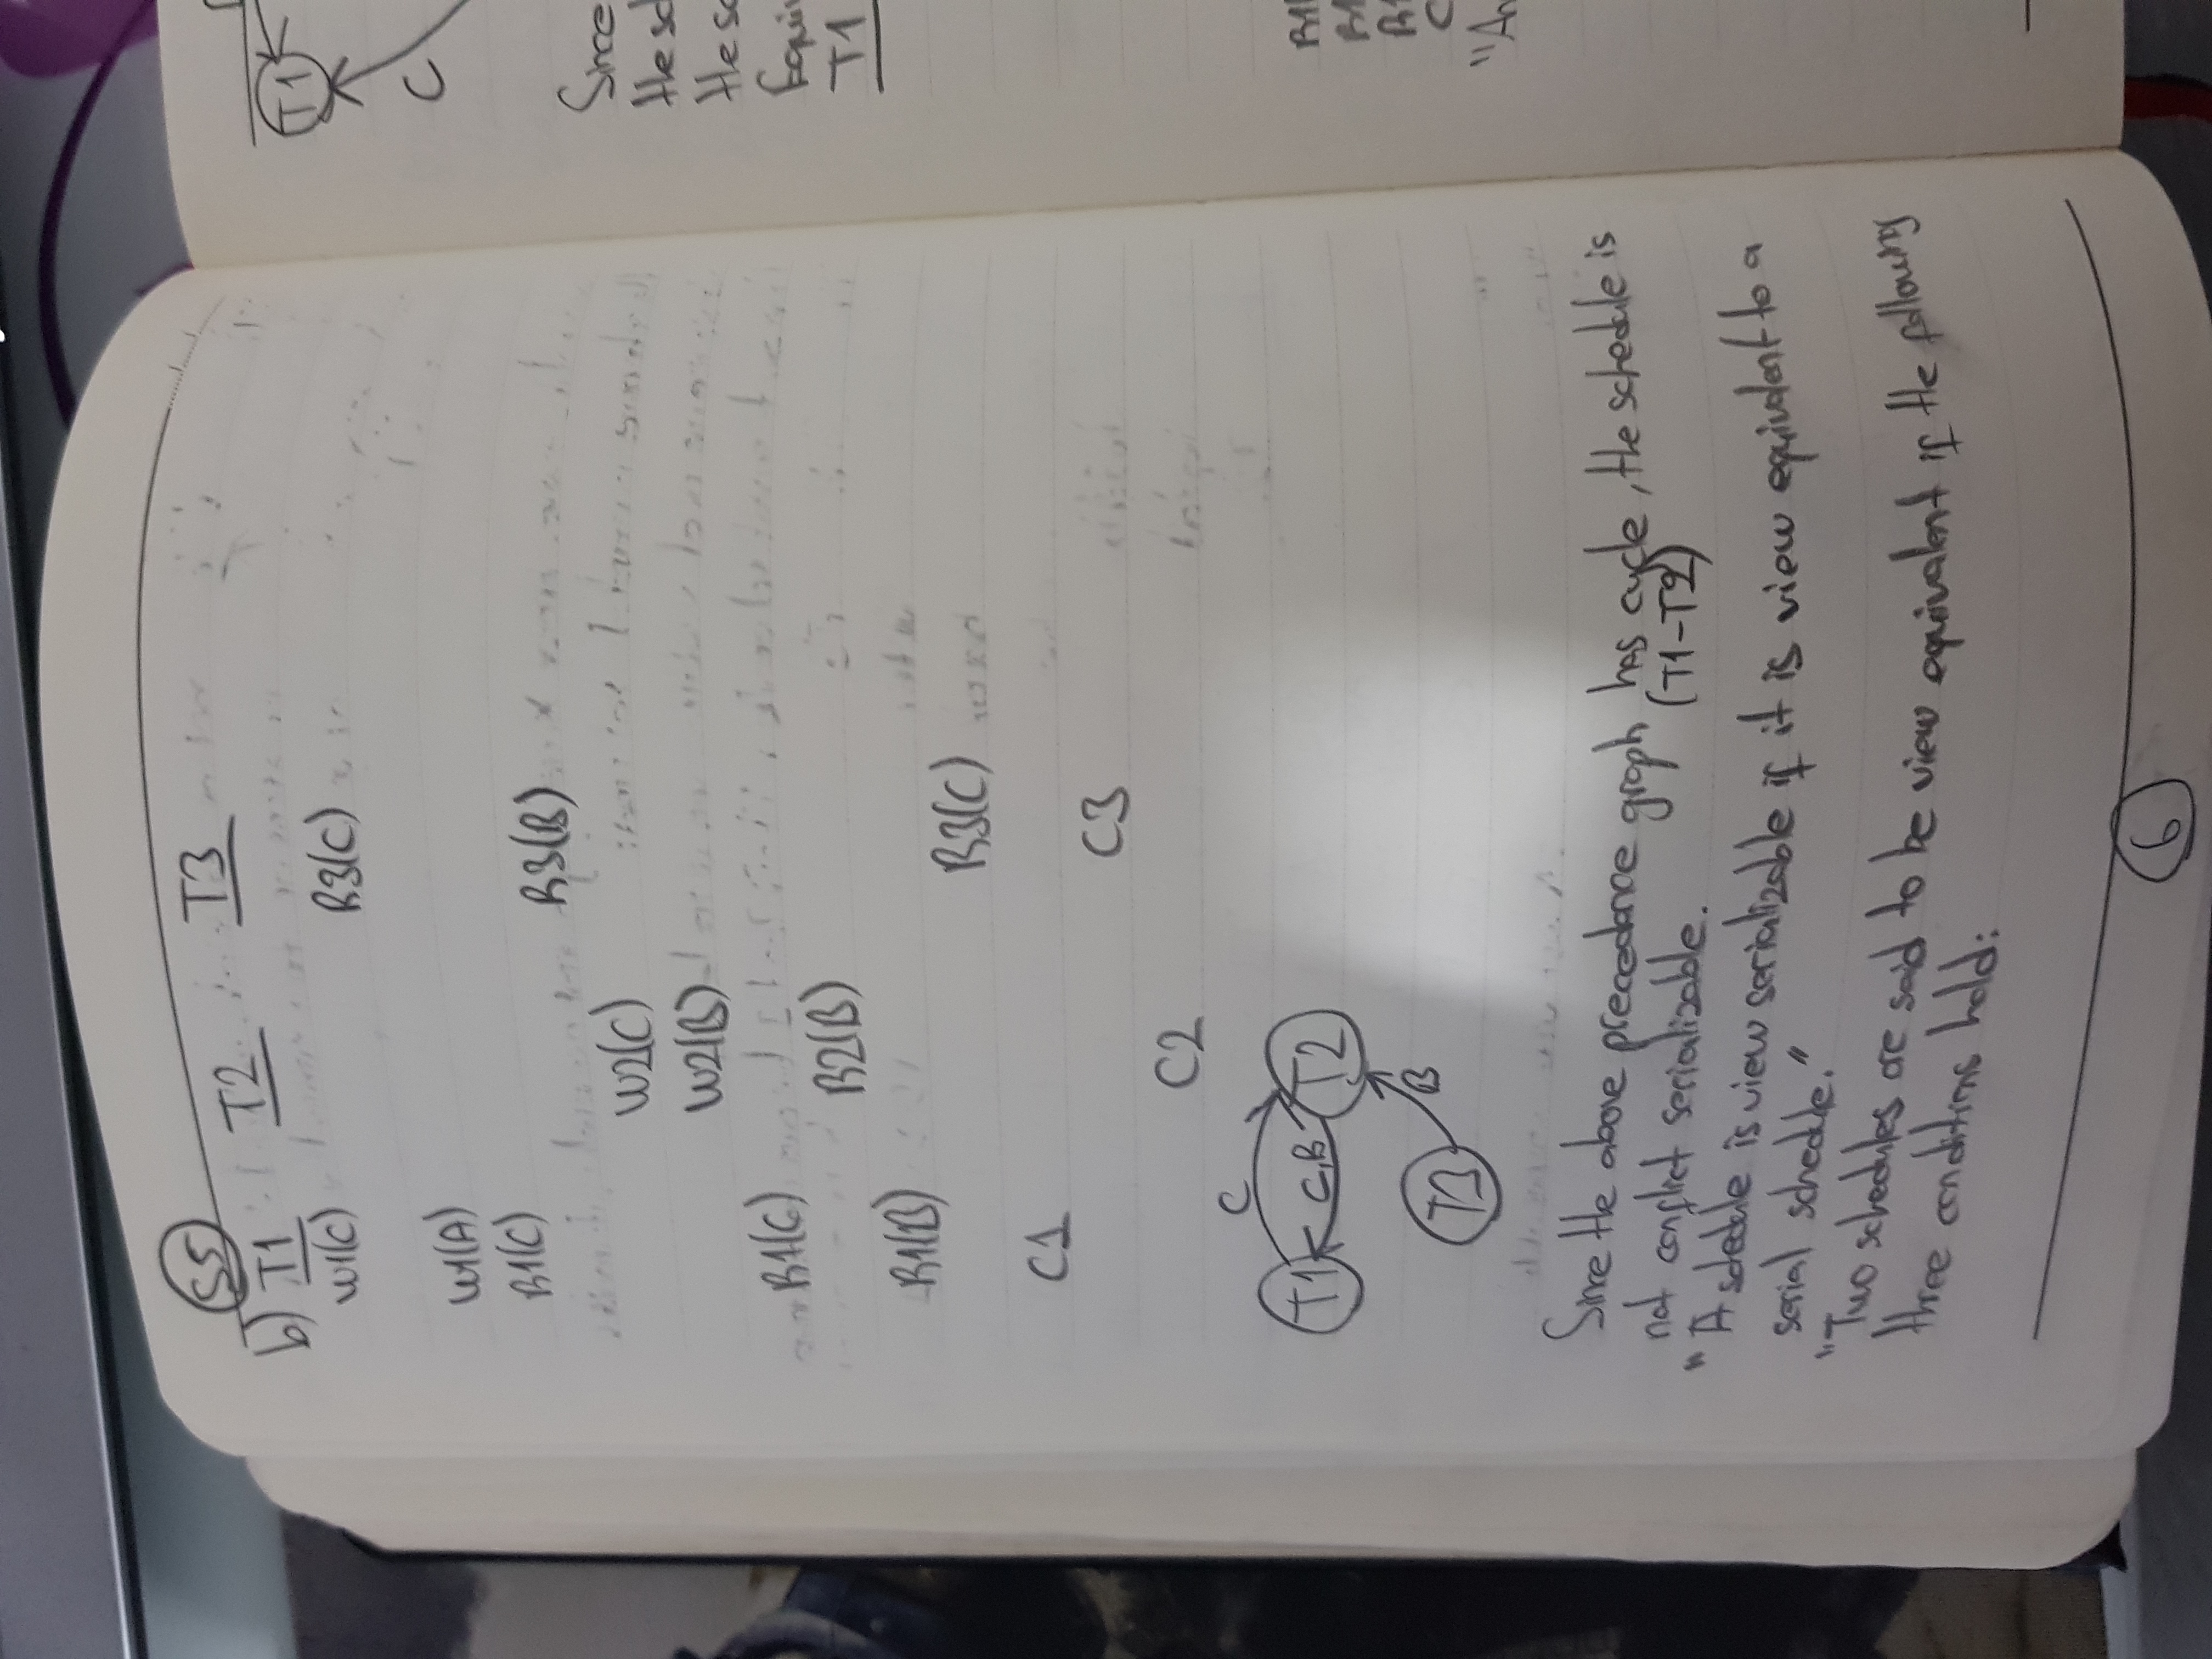 S5
b) T1 T2 T3
W1(C) R3(C)
W1(A)
R1(C)
R3(B)
W2(C)
W2(B)
R1(C)
R2(B)
R1(B)
R3(C)
C1
C3
C2
C
T1 C,B T2
B
T3
Since the above precedence graph has cycle, the schedule is
not conflict serializable. (T1-T2)
"A schedule is view serializable if it is view equivalent to a
serial schedule."
"Two schedules are said to be view equivalent if the following
three conditions hold:
6
T1
C
Since
the sc
the sc
Equiv
T1
R1
R1
R1
C
"An